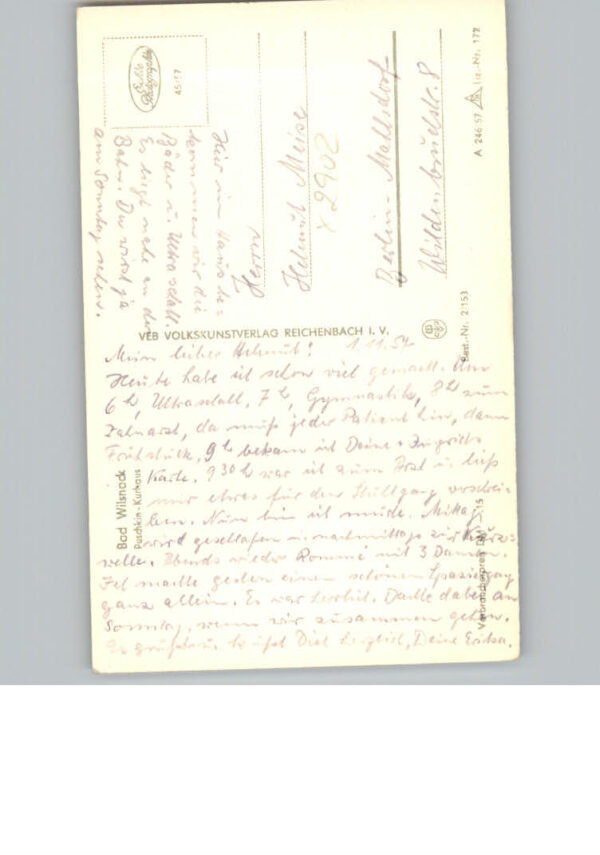 Echte Photographie
45/57
Hier im Hause be-
kommen wir die
Bäder u. Ultraschall.
Es liegt nahe an der
Bahn. Du wirst ja
am Sonntag sehen.
Herrn
Helmut Meise
X 2902
Berlin-Mahlsdorf
Wildenbruchstr. 8
A 246/57 Liz.-Nr. 172
VEB VOLKSKUNSTVERLAG REICHENBACH I. V.
Best.-Nr. 2/153
Bad Wilsnack
Puschkin-Kurhaus
Verbraucherpreis DM
Mein lieber Helmut! 1.11.57
Heute habe ich schon viel gemacht. Um
6 h, Ultraschall, 7 h, Gymnastik, 8 h zum
Zahnarzt, da muß jeder Patient hin, dann
Frühstück. 9 h bekam ich Deine + Ingrids
Karte. 9 30 h war ich zum Arzt u. ließ
mir etwas für den Stuhlgang verschrei-
ben. Nun bin ich müde. Mittag
wird geschlafen u. nachmittags zur Kurz-
welle. Abends wieder Rommé mit 3 Damen.
Ich machte gestern einen schönen Spaziergang
ganz allein. Es war herrlich. Dachte dabei an
Sonntag, wenn wir zusammen gehen.
Es grüßt u. küßt Dich herzlich, Deine Erika.